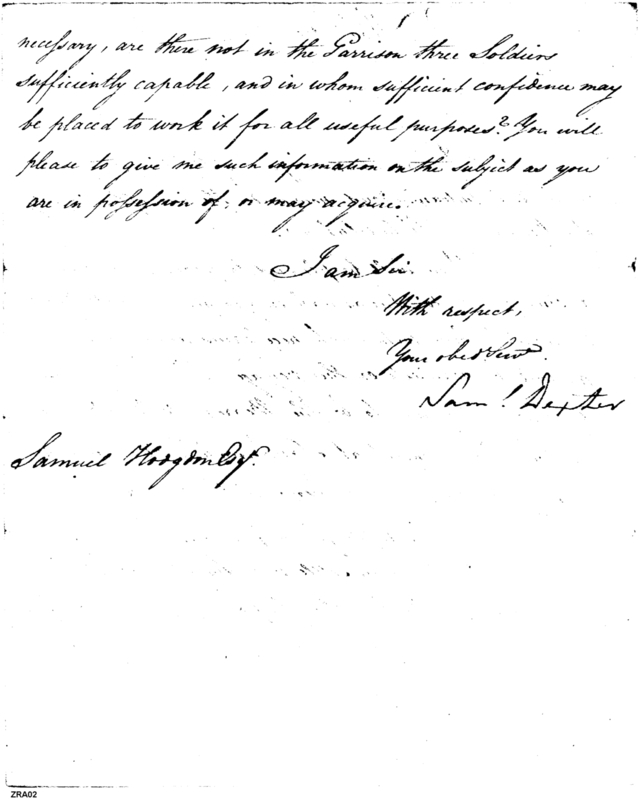 necessary, are there not in the Garrison three Soldiers
sufficiently capable, and in whom sufficient confidence may
be placed to work it for all useful purposes? You will
please to give me such information on the subject as you
are in possession of, or may acquire.
I am Sir.
With respect,
Your obed Servt
Saml. Dexter
Samuel Hodgdon Esqr.
ZRA02